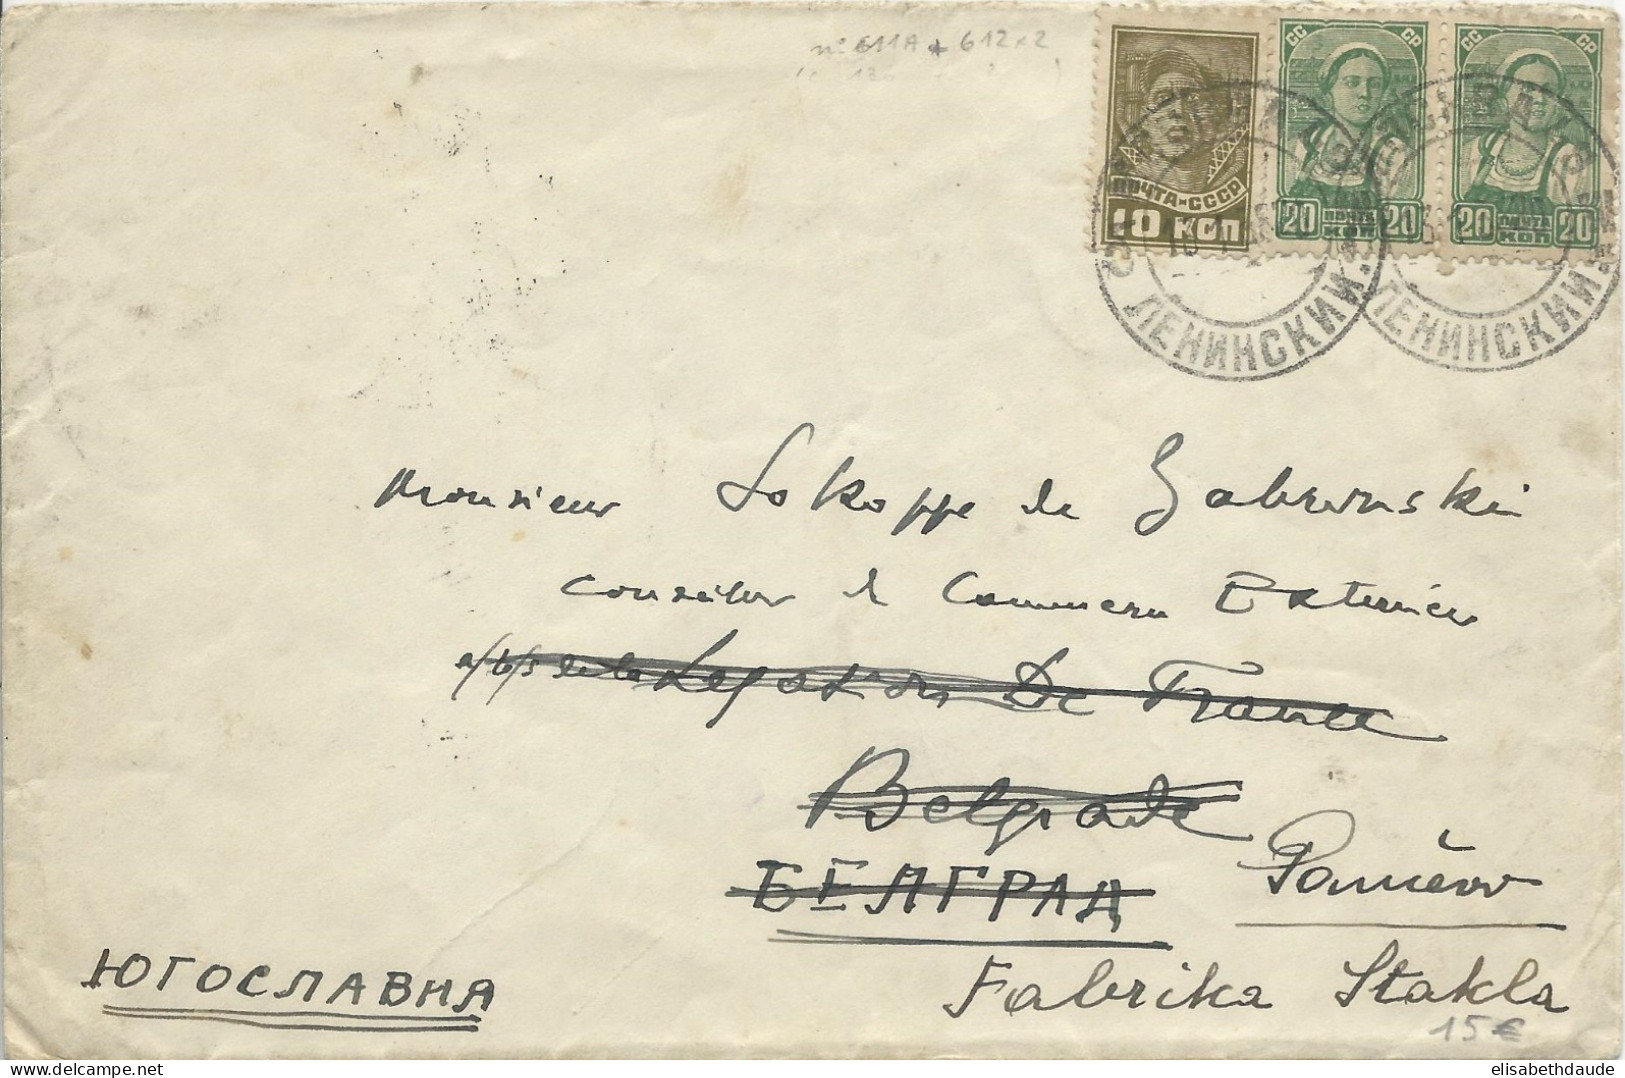 n° 611A + 612x2
ПОЧТА-СССР
10 КОП
СС СР
20 ПОЧТА КОП 20
СС СР
20 ПОЧТА КОП 20
ЛЕНИНСКИЙ
ЛЕНИНСКИЙ
Monsieur Sokoppe de Zabrowski
Conseiller de Commerce Extérieur
a/b/s de la Legation De France
Belgrade
БЕЛГРАД
Pančevo
ЮГОСЛАВИЯ
Fabrika Stakla
15€
delcampe.net
elisabethdaude